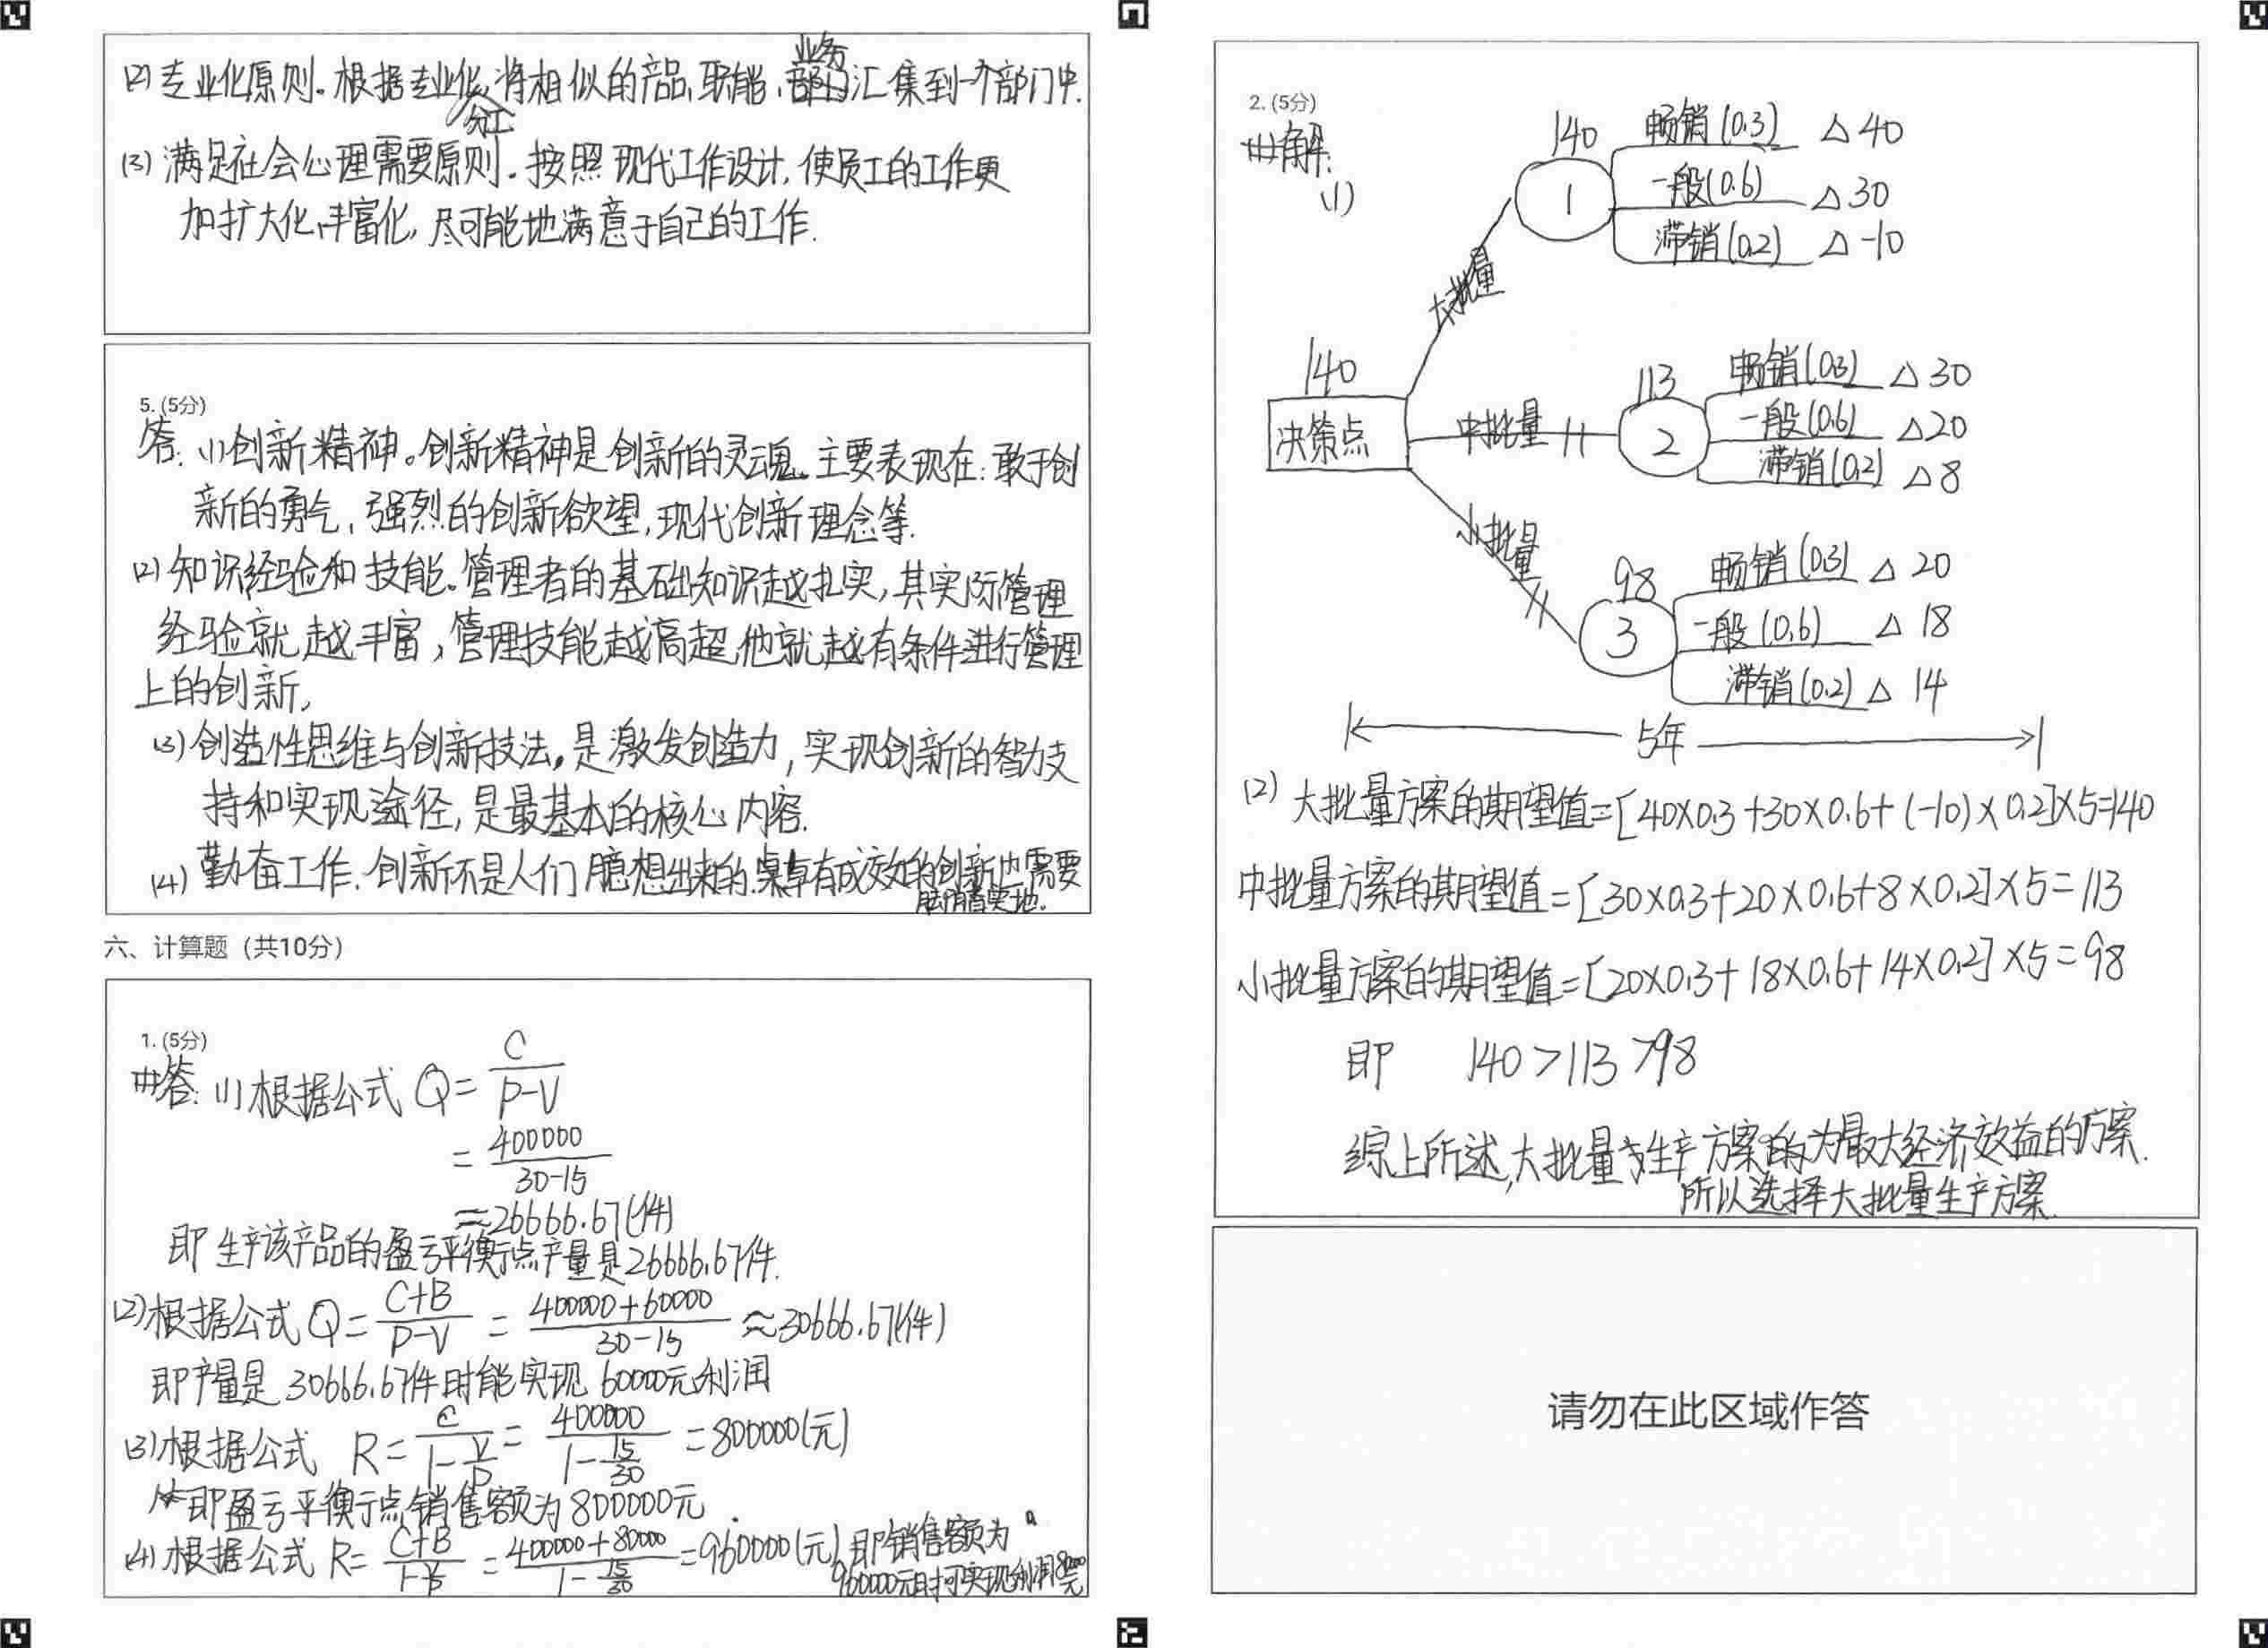 (2) 专业化原则。根据专业化分工,将相似的产品,职能,业务汇集到一个部门中.
(3) 满足社会心理需要原则.按照现代工作设计,使员工的工作更
加扩大化,丰富化,尽可能地满意于自己的工作.
5. (5分)
答: (1)创新精神。创新精神是创新的灵魂.主要表现在:敢于创
新的勇气,强烈的创新欲望,现代创新理念等.
(2)知识经验和技能。管理者的基础知识越扎实,其实际管理
经验就越丰富,管理技能越高超,他就越有条件进行管理
上的创新,
(3)创造性思维与创新技法。是激发创造力,实现创新的智力支
持和实现途径,是最基本的核心内容.
(4) 勤奋工作.创新不是人们臆想出来的.卓有成效的创新也需要
脚踏实地.
六、计算题(共10分)
1. (5分)
答: (1)根据公式 Q= C/(P-V)
= 400000/(30-15)
≈26666.67(件)
即生产该产品的盈亏平衡点产量是26666.67件.
(2)根据公式 Q= (C+B)/(P-V) = (400000+60000)/(30-15) ≈30666.67(件)
即产量是30666.67件时能实现60000元利润
(3)根据公式 R= C/(1-V/P) = 400000/(1-15/30) =800000(元)
即盈亏平衡点销售额为800000元.
(4)根据公式 R= (C+B)/(1-V/P) = (400000+80000)/(1-15/30) =960000(元) 即销售额为
960000元时可实现利润80000元
2. (5分)
解:
(1)
140
1
畅销(0.3) △ 40
一般(0.6) △ 30
滞销(0.2) △ -10
大批量
140
决策点
中批量
113
2
畅销(0.3) △ 30
一般(0.6) △20
滞销(0.2) △ 8
小批量
98
3
畅销(0.3) △ 20
一般(0.6) △ 18
滞销(0.2) △ 14
5年
(2) 大批量方案的期望值=[40×0.3+30×0.6+(-10)×0.2]×5=140
中批量方案的期望值=[30×0.3+20×0.6+8×0.2]×5=113
小批量方案的期望值=[20×0.3+18×0.6+14×0.2]×5=98
即 140>113>98
综上所述,大批量生产方案为最大经济效益的方案.
所以选择大批量生产方案.
请勿在此区域作答